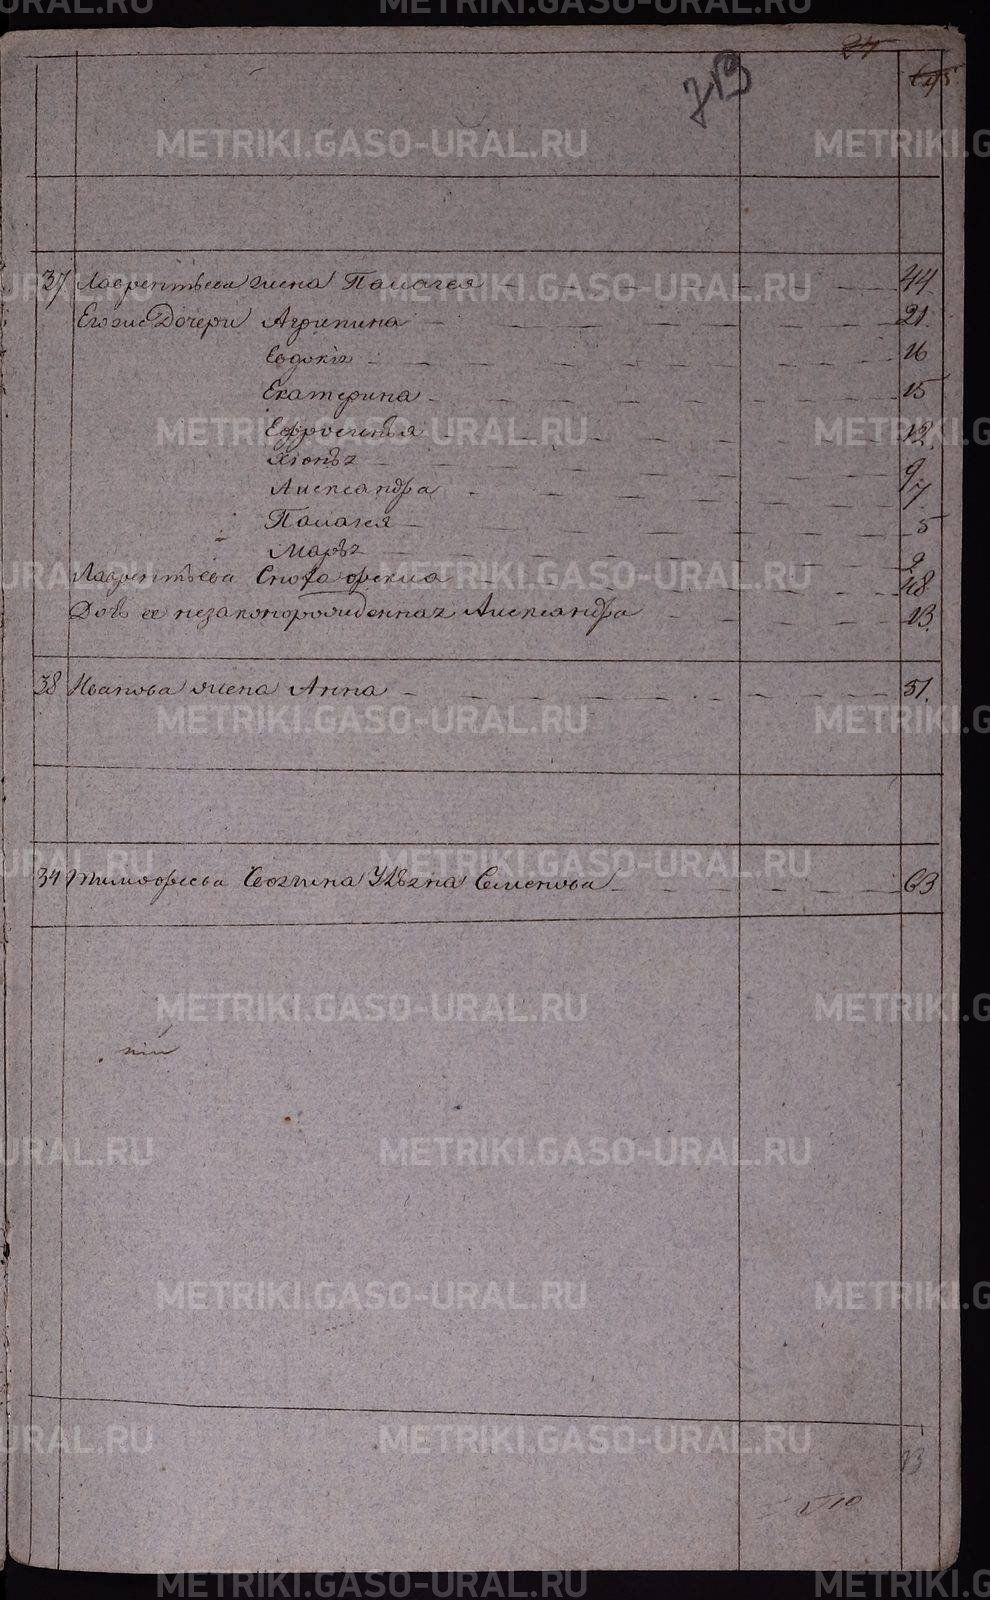 METRIKI.GASO-URAL.RU
24
713
37 Лаврентьева жена Палагея 44
Егоже Дочери Агрипина 21.
Евдокія 16
Екатерина 15
Ефросинья 12.
Хіонья 9
Александра 7.
Палагея 5
Марья 2
Лаврентьева Сноха 48
Дочь ее незаконорожденная Александра 13.
38 Иванова жена Анна 51.
34 Тимофеева Семенова 63
13